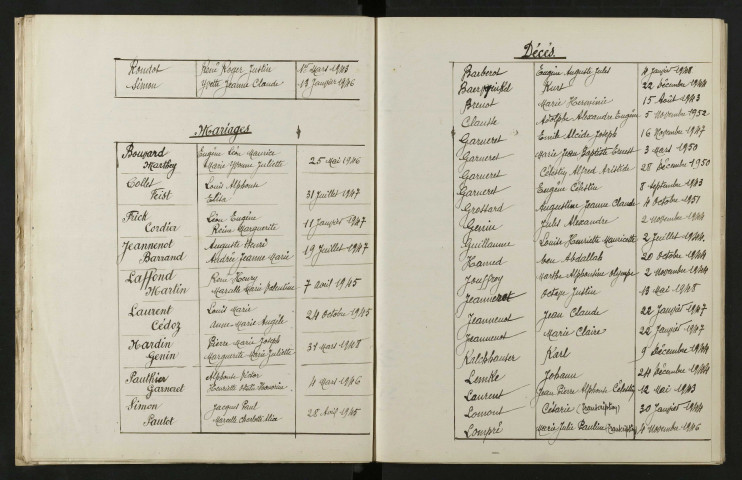 Roudot René Roger Justin 1er Mars 1943
Simon Yvette Jeanne Claude 12 Janvier 1946
Mariages
Bouvard Eugène Léon Maurice
Marthey Marie Yvonne Juliette 25 Mai 1946
Collet Louis Alphonse
Feist 31 Juillet 1947
Frick Léon Eugène
Cordia Reine Marguerite 11 Janvier 1947
Jeannenot Auguste Henri
Barrand Andrée Jeanne Marie 19 Juillet 1947
Laffond René Henry
Martin Marcelle Marie Valentine 7 août 1945
Laurent Louis Marie
Cédoz Anne Marie Angèle 24 Octobre 1945
Mardin Pierre Marie Joseph
Genin Marguerite Marie Juliette 31 Mars 1948
Paulhier Alphonse Victor
Garneret Henriette Honorine 4 Mars 1946
Simon Jacques Paul
Pautot Marcelle Charlotte 28 Avril 1945
Décès
Barberot Eugène Auguste Jules 4 Janvier 1948
Kurt 22 Décembre 1944
Brenot Marie Herminie 15 Août 1943
Claude Adolphe Alexandre Eugène 5 Novembre 1952
Garneret Emile Alcide Joseph 16 Novembre 1947
Garneret Marie Jean Baptiste Ernest 3 Mars 1950
Garneret Célestin Alfred Aristide 28 Décembre 1950
Garneret Eugène Célestin 8 Septembre 1943
Grossard Augustine Jeanne Claude 4 Octobre 1951
Genin Jules Alexandre 2 Novembre 1944
Guillaume Louise Henriette Mauricette 2 Juillet 1944
Hamed ben Abdallah 20 Octobre 1944
Jouffroy Marthe Alphonsine Olympe 2 Novembre 1944
Jeanneret Octave Justin 13 Mai 1948
Jeannenot Jean Claude 22 Janvier 1947
Jeannenot Marie Claire 22 Janvier 1947
Kalchhauser Karl 9 Décembre 1944
Lemke Johann 24 Décembre 1944
Laurent Jean Pierre Alphonse Célestin 12 Mai 1943
Lomont Césarie (Transcription) 30 Janvier 1944
Lompré Marie Julie Pauline (transcription) 4 Novembre 1946